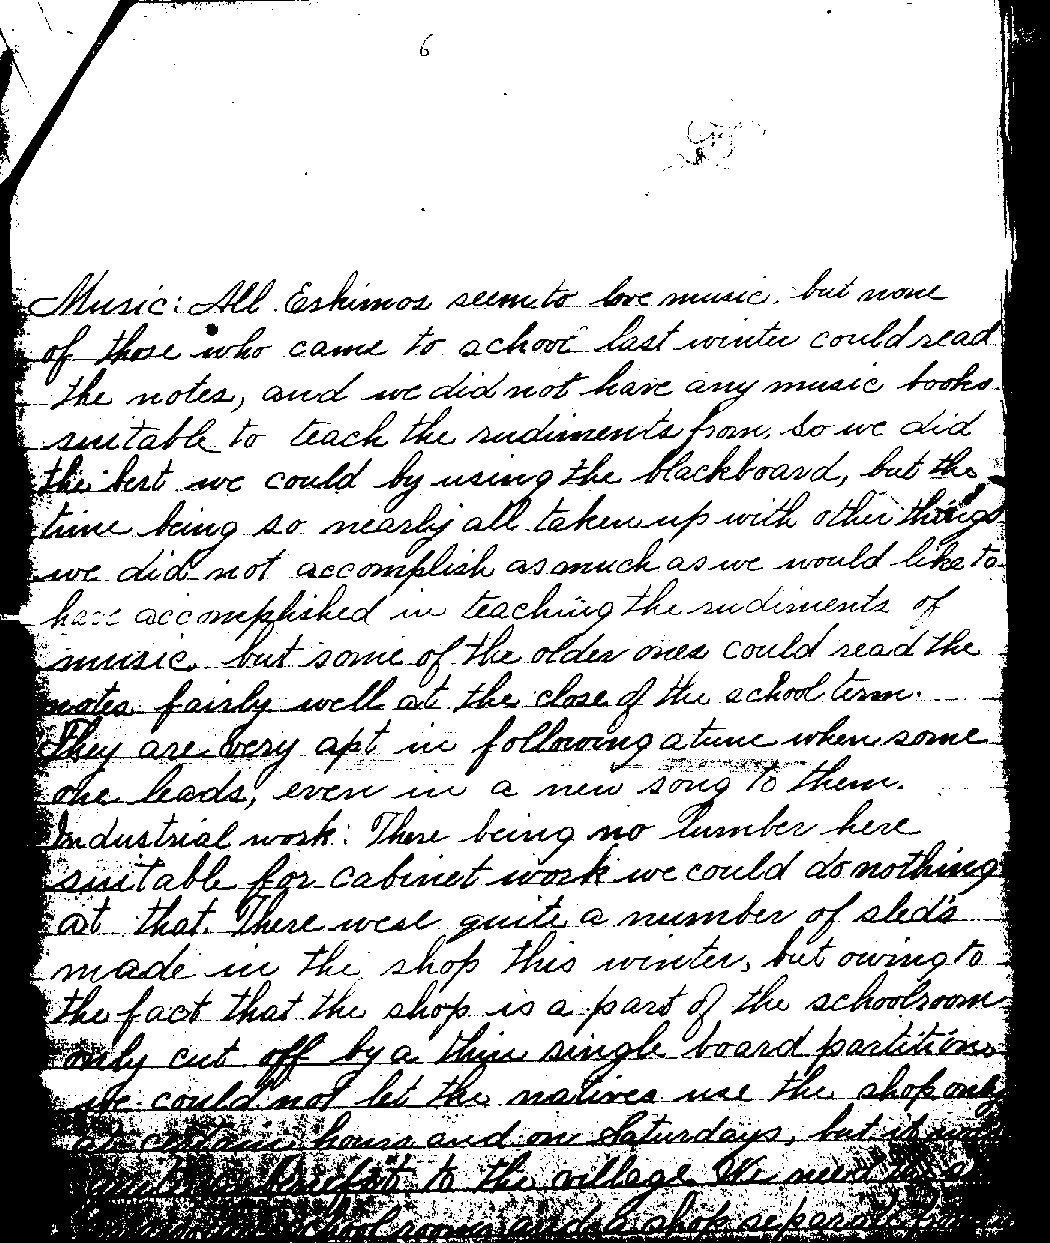 6
Music: All Eskimos seem to love music, but none
of those who came to school last winter could read
the notes, and we did not have any music books
suitable to teach the rudiments from, so we did
the best we could by using the blackboard, but the
time being so nearly all taken up with other things
we did not accomplish as much as we would like to
have accomplished in teaching the rudiments of
music, but some of the older ones could read the
notes fairly well at the close of the school term.
They are very apt in following a tune when some
one leads, even in a new song to them.
Industrial work: There being no lumber here
suitable for cabinet work we could do nothing
at that. There were quite a number of sleds
made in the shop this winter, but owing to
the fact that the shop is a part of the schoolroom
only cut off by a thin single board partition
we could not let the natives use the shop only
at certain hours and on Saturdays, but it
benefit to the village. We need
schoolroom and a shop separate from